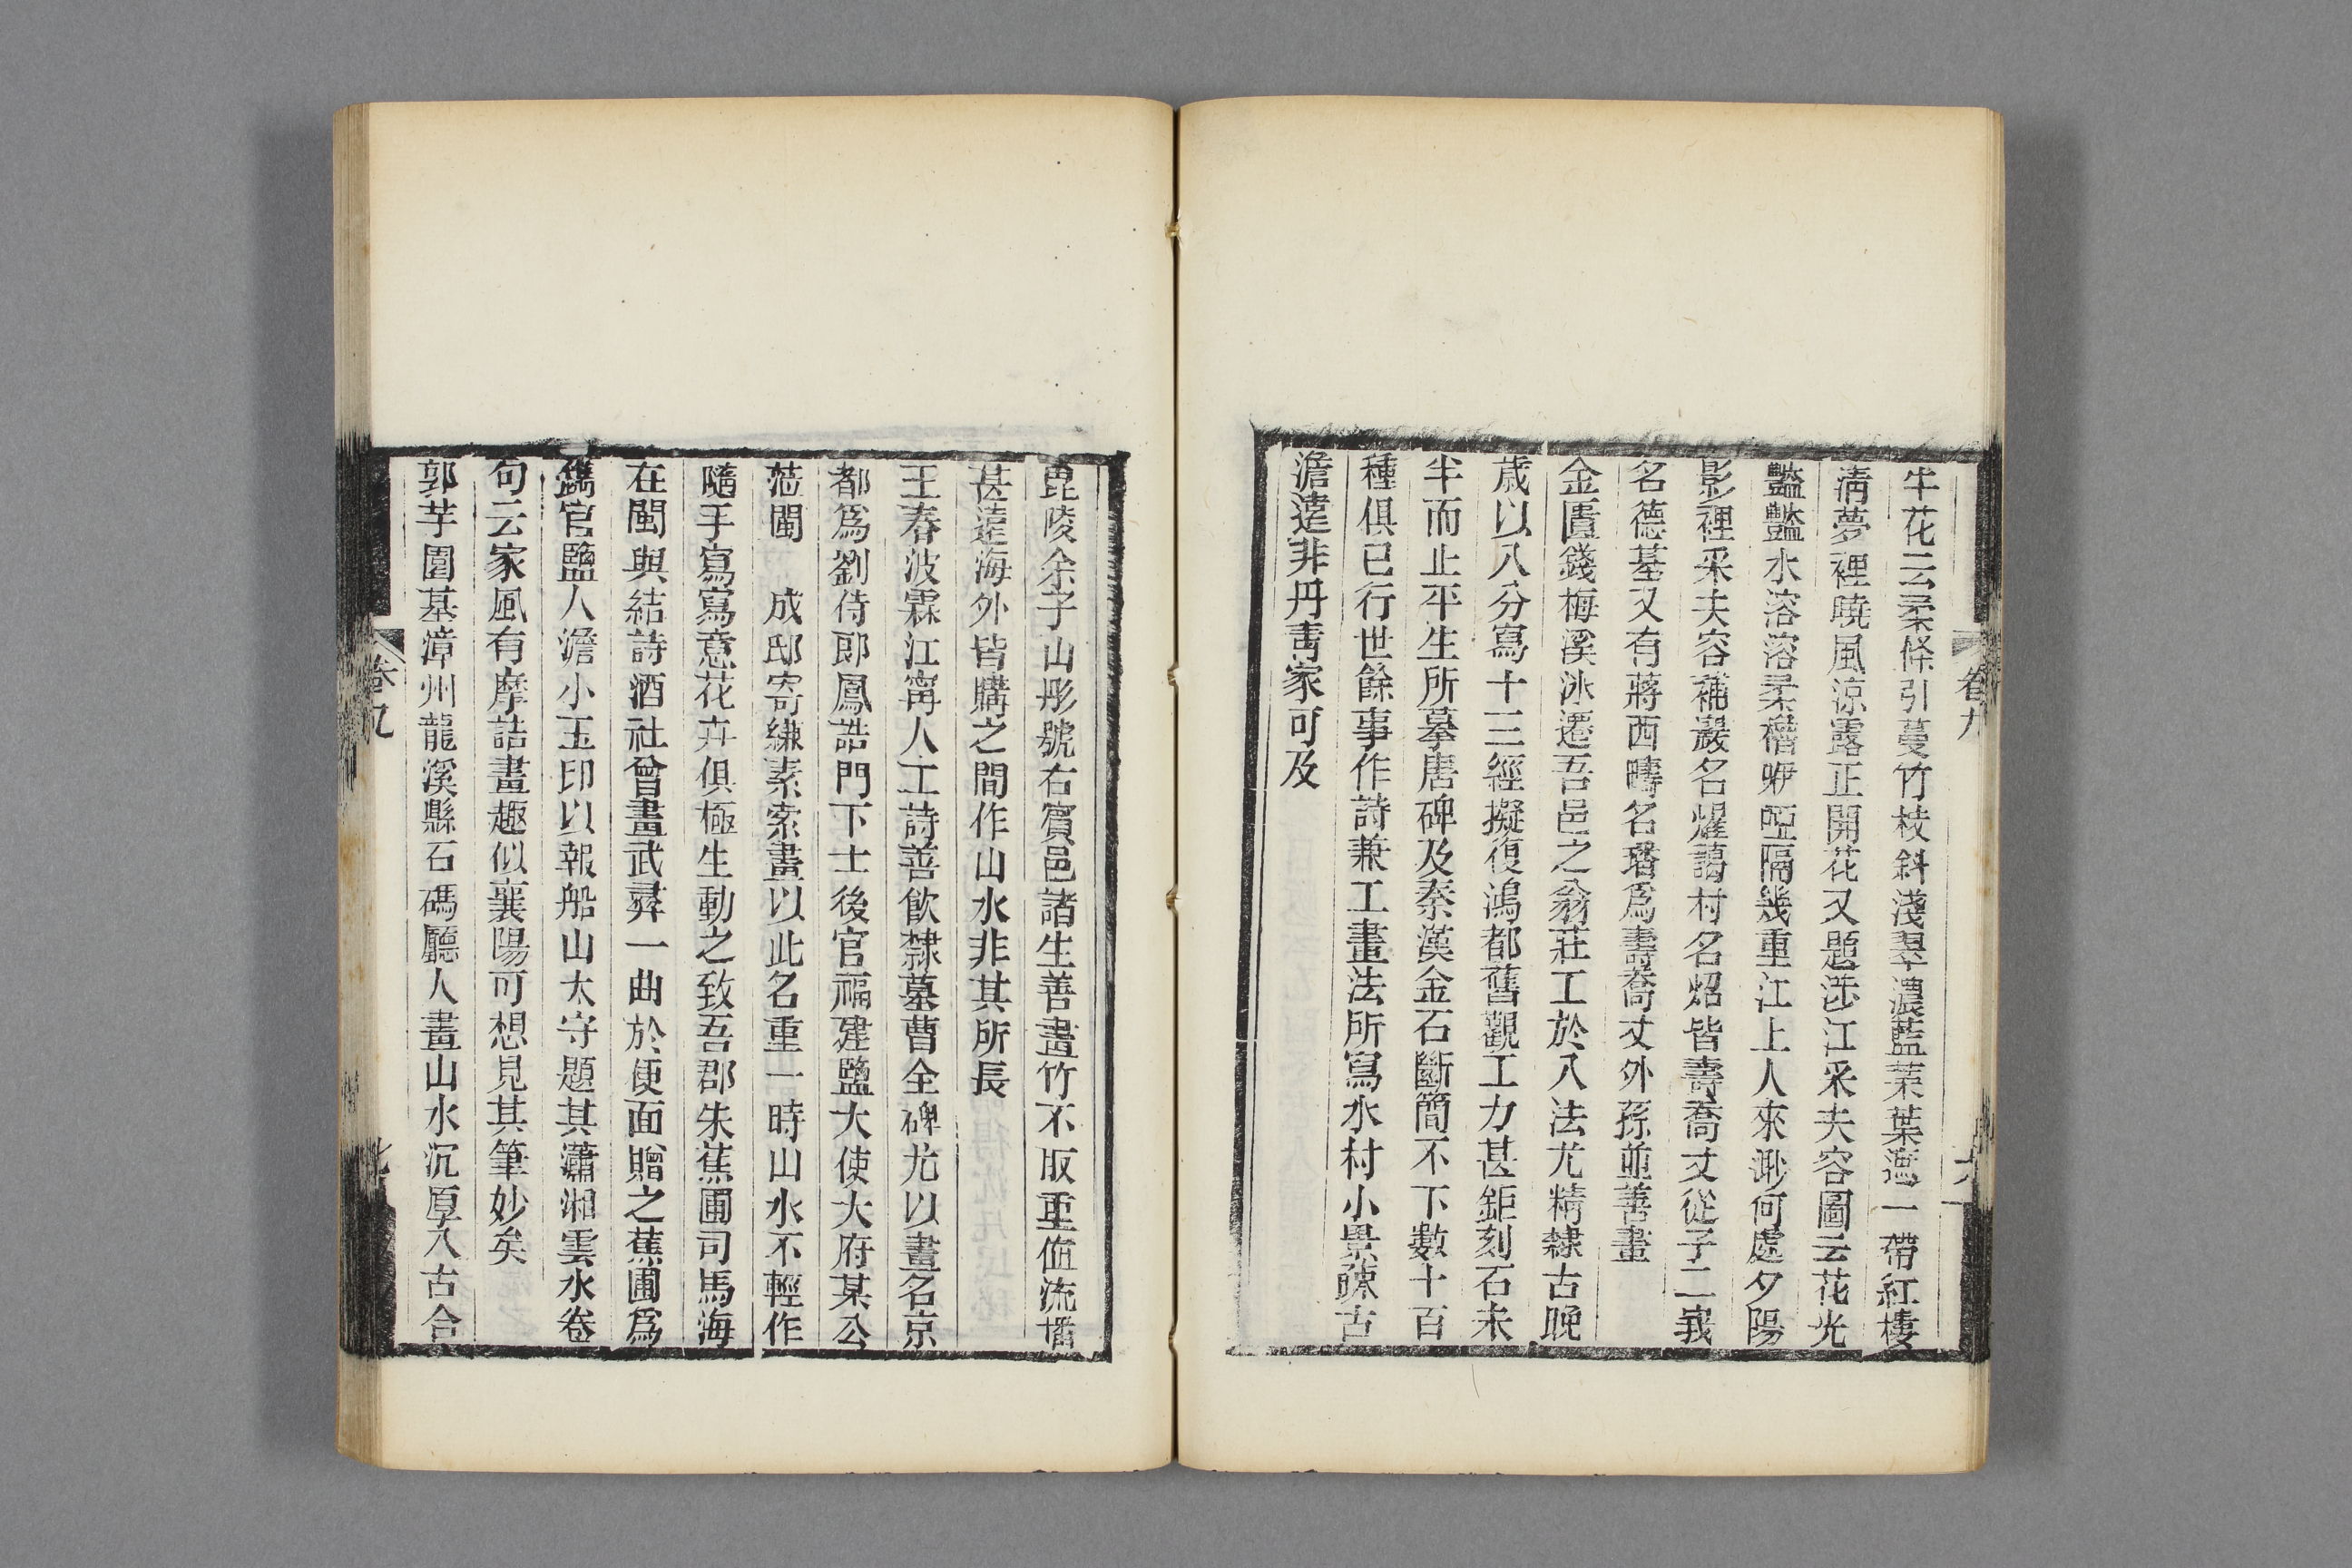 牛花云柔條引蔓竹枝斜淺翠濃藍葉葉遮一帶紅樓
淸夢裡曉風涼露正開花又題涉江采夫容圖云花光
豔豔水溶溶柔櫓咿啞隔幾重江上人來渺何處夕陽
影裡采夫容補巖名燿藹村名炤皆壽喬丈從子二峩
名德基又有蔣西疇名璠爲壽喬丈外孫並善畫
金匱錢梅溪泳遷吾邑之翁莊工於八法尤精隸古晚
歲以八分寫十三經擬復鴻都舊觀工力甚鉅刻石未
半而止平生所摹唐碑及秦漢金石斷簡不下數十百
種俱已行世餘事作詩兼工畫法所寫水村小景疎古
澹遠非丹靑家可及
卷九
毘陵余子山彤號右賓邑諸生善畫竹不取重値流播
甚遠海外皆購之間作山水非其所長
王春波霖江甯人工詩善飮隸摹曹全碑尤以畫名京
都爲劉侍郞鳳誥門下士後官福建鹽大使大府某公
蒞閩　成邸寄縑素索畫以此名重一時山水不輕作
隨手寫寫意花卉俱極生動之致吾郡朱蕉圃司馬海
在閩與結詩酒社曾畫武彛一曲於便面贈之蕉圃爲
鐫官鹽人澹小玉印以報船山太守題其瀟湘雲水卷
句云家風有摩詰畫趣似襄陽可想見其筆妙矣
郭芋圃基漳州龍溪縣石碼廳人畫山水沉厚入古合
卷九